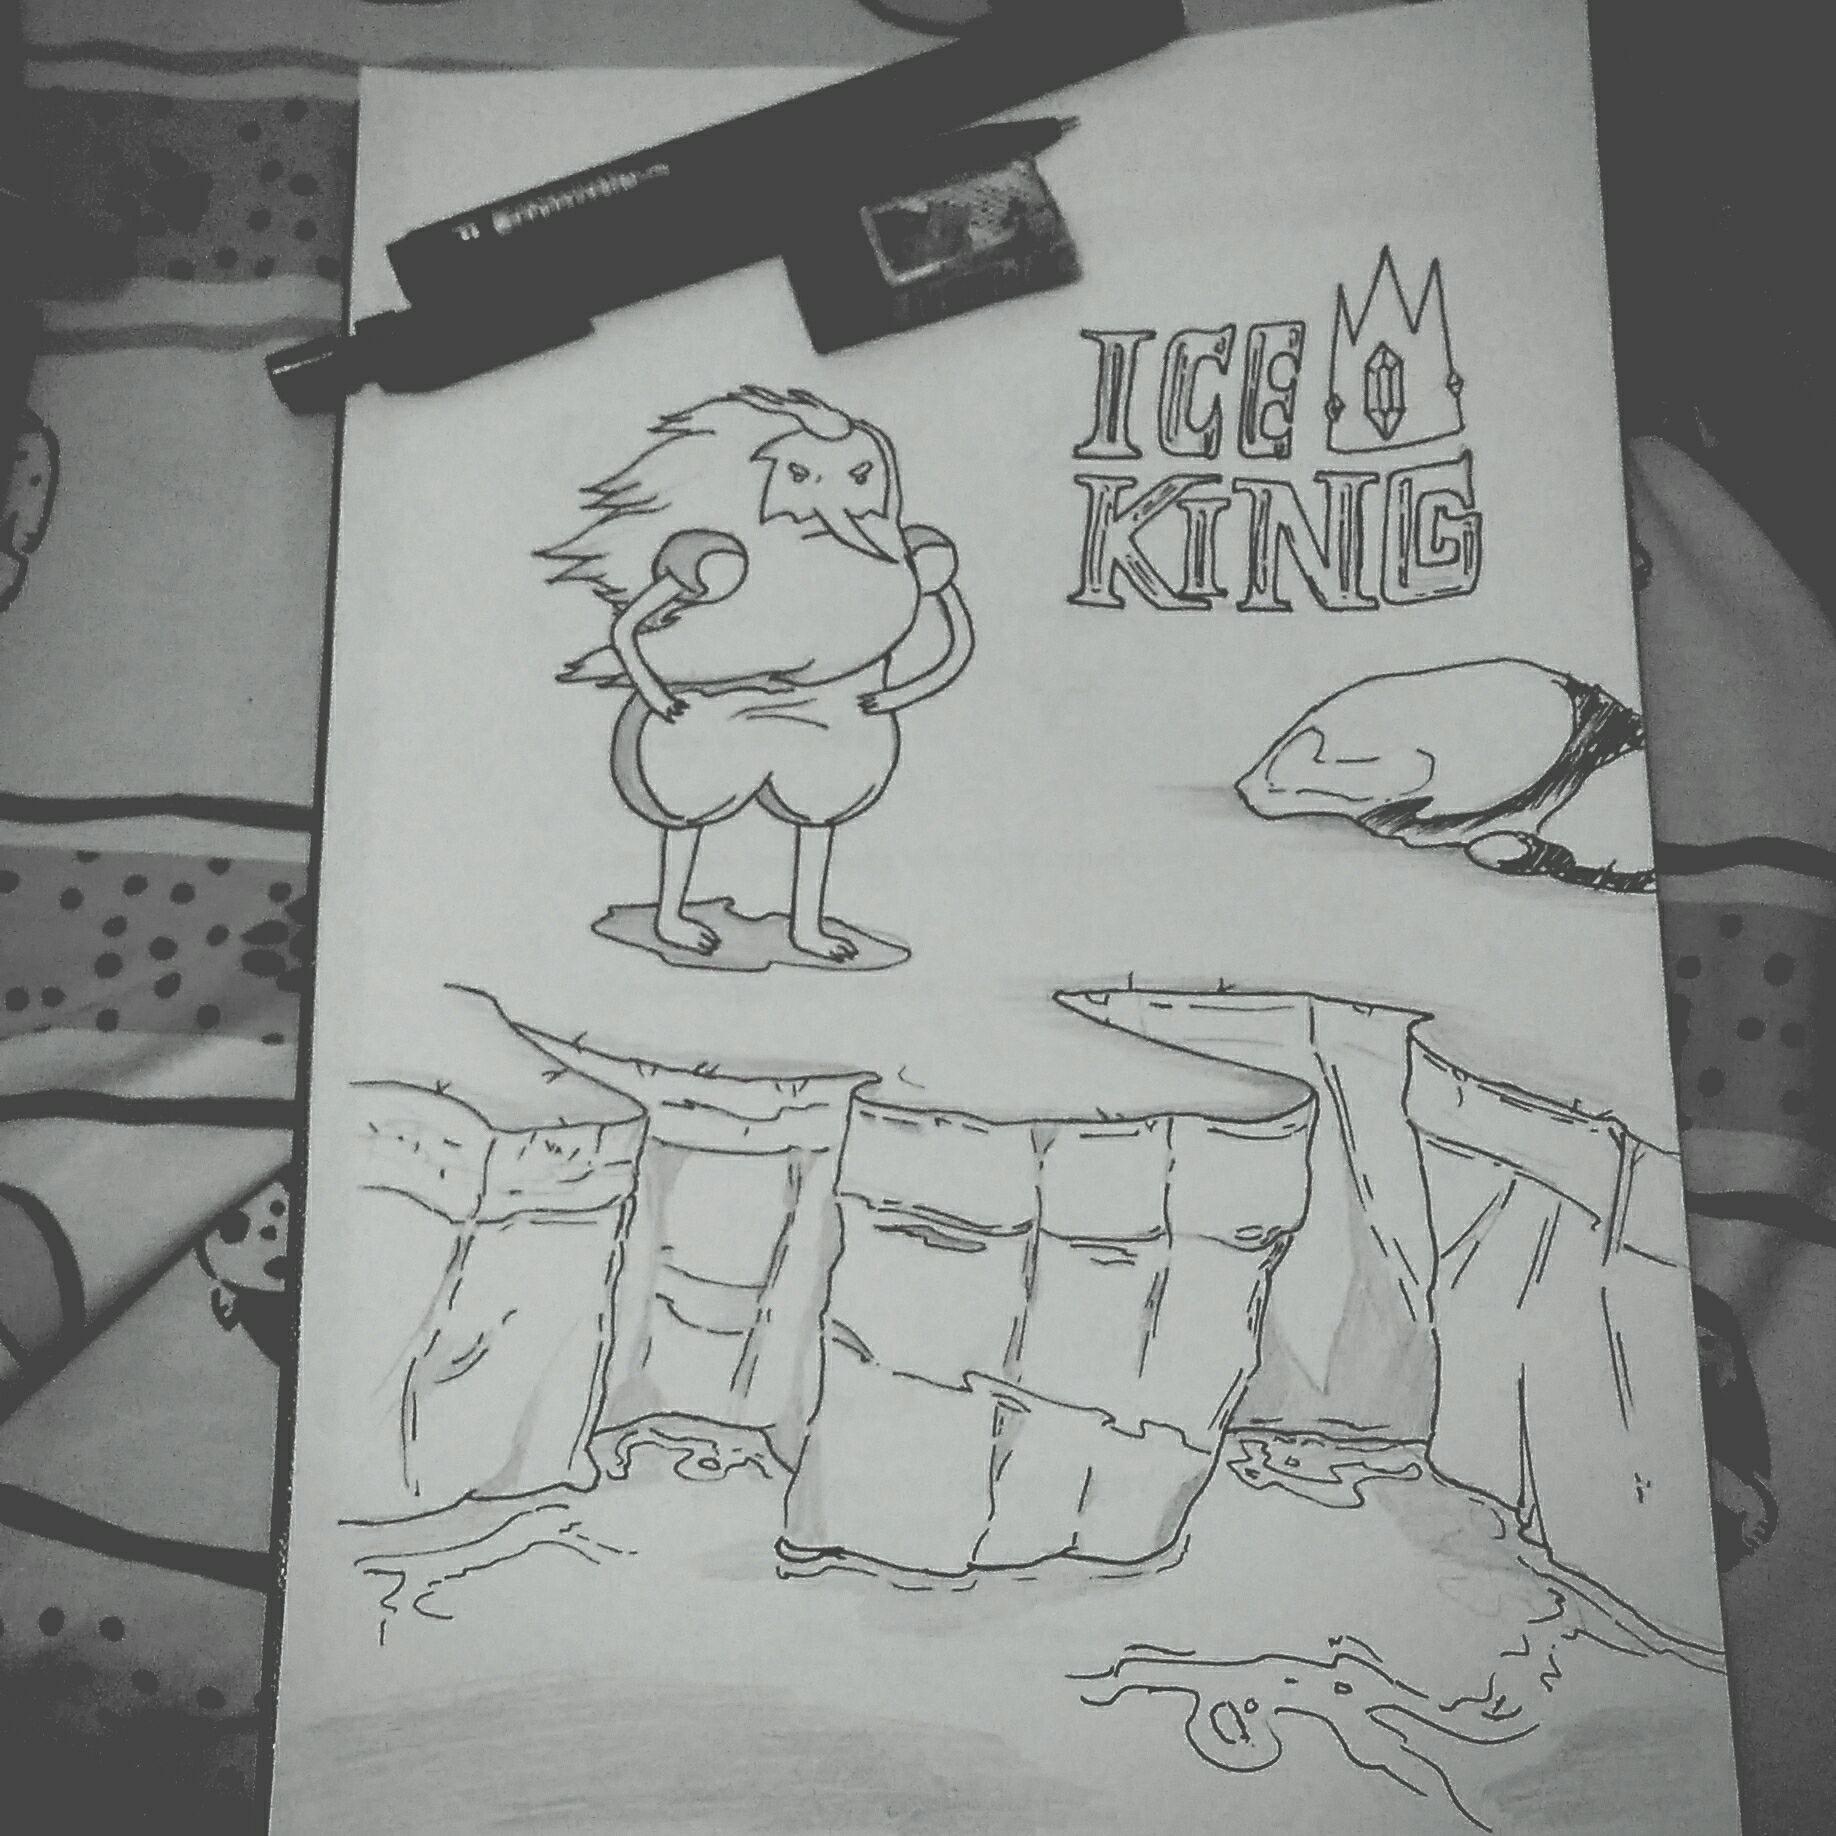 ICE
KING